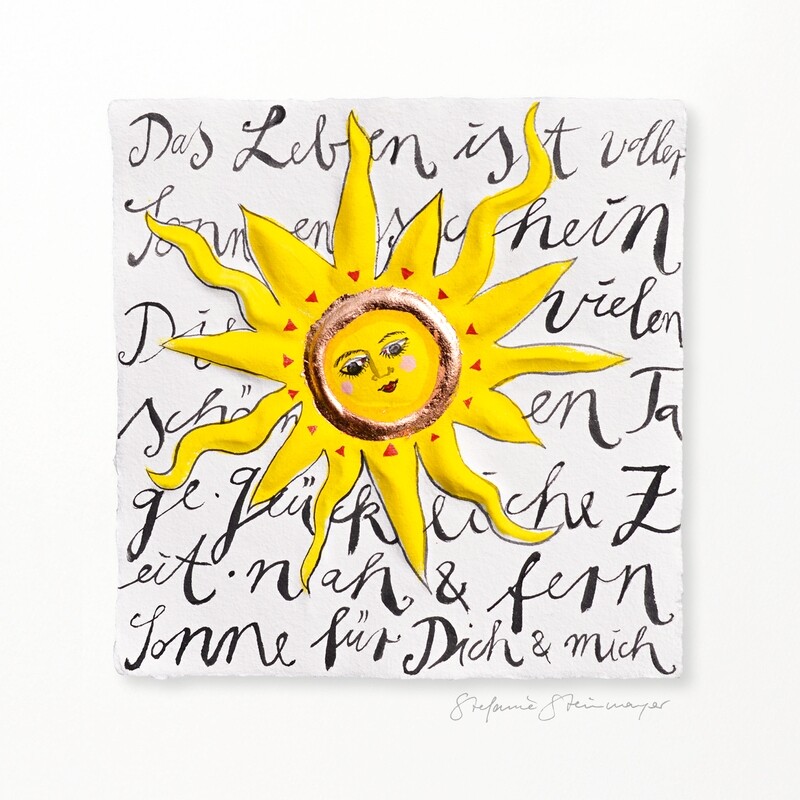 Das Leben ist voller
Sonnenschein
Die vielen
schönen Ta
ge. glückliche Z
eit. nah & fern
Sonne für Dich & mich
Stefanie Steinmayer